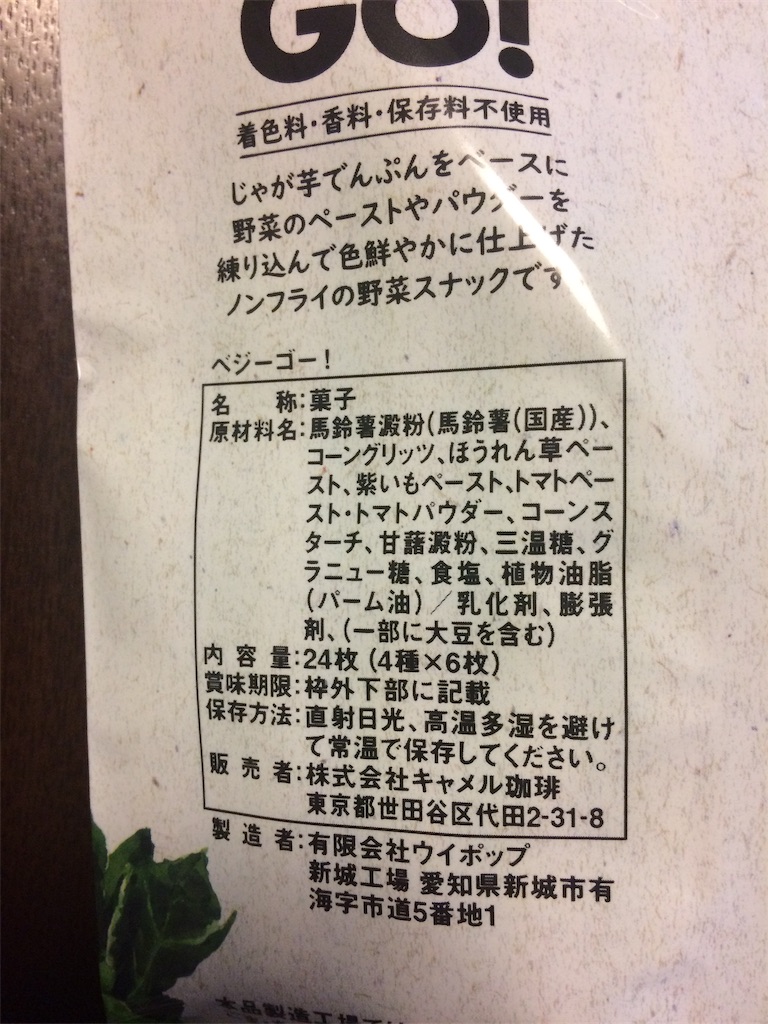 GO!
着色料・香料・保存料不使用
じゃが芋でんぷんをベースに
野菜のペーストやパウダーを
練り込んで色鮮やかに仕上げた
ノンフライの野菜スナックです
ベジーゴー!
名 称:菓子
原材料名:馬鈴薯澱粉(馬鈴薯(国産))、
コーングリッツ、ほうれん草ペー
スト、紫いもペースト、トマトペー
スト・トマトパウダー、コーンス
ターチ、甘藷澱粉、三温糖、グ
ラニュー糖、食塩、植物油脂
(パーム油)/乳化剤、膨張
剤、(一部に大豆を含む)
内容量:24枚(4種×6枚)
賞味期限:枠外下部に記載
保存方法:直射日光、高温多湿を避け
て常温で保存してください。
販売者:株式会社キャメル珈琲
東京都世田谷区代田2-31-8
製造者:有限会社ウイポップ
新城工場 愛知県新城市有
海字市道5番地1
本品製造工場では